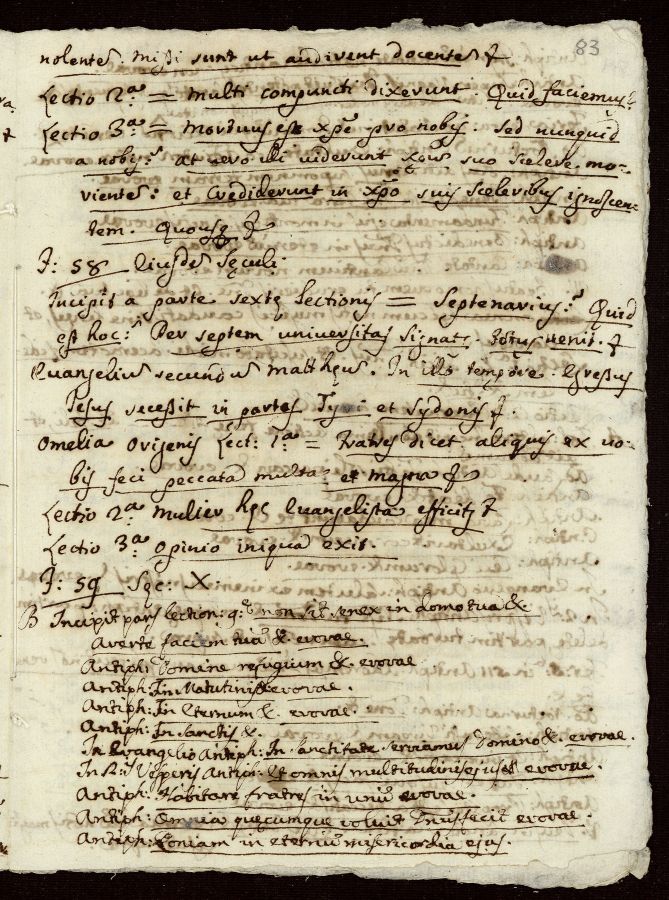 83
nolentes. missi sunt ut audirent docentes &
Lectio 2.a = multi compuncti dixerunt. Quid faciemus.
Lectio 3.a = Mortuus est xpe pro nobis. Sed nunquid
a nobis. at vero illi viderunt suo scelere mo-
rientes: et Crediderunt in xpo suis sceleribus ignoscen-
tem. Quousq &
F: 58 Ejusdes Sęculi
Incipit a parte sextę Lectionis = Septenarius. Quid
est hoc: Per septem universitas signat. totus venit. &
Evangeliũ secundũ Matthęũ. In illo tempore. Egressus
Jesus secessit in partes Tyri et Sydonis &.
Omelia Origenis Lect: 1.a = Fratres dicet aliquis ex vo-
bis feci peccata multa et magna &
Lectio 2.a Mulier hęc Evangelista efficit &
Lectio 3.a opinio iniqua exit.
F: 59 Sęc: X.
B Incipit pars lection: q.e non sit senex in domo tua &.
Averte faciem tuã &. evovae.
Antiph: Domine refugium &. evovae
Antiph: In Matutinis & evovae.
Antiph: In Eternum &. evovae.
Antiph: In Sanctis &.
In Evangelio Antiph: In Sanctitate serviamus Domino &. evovae.
In Vesperis Antiph: Et omnis multitudinis ejus & evovae.
Antiph: Habitare fratres in unũ evovae.
Antiph: Omnia quęcumque voluit Dnus fecit evovae.
Antiph: Qoniam in eternũ misericordia ejus.